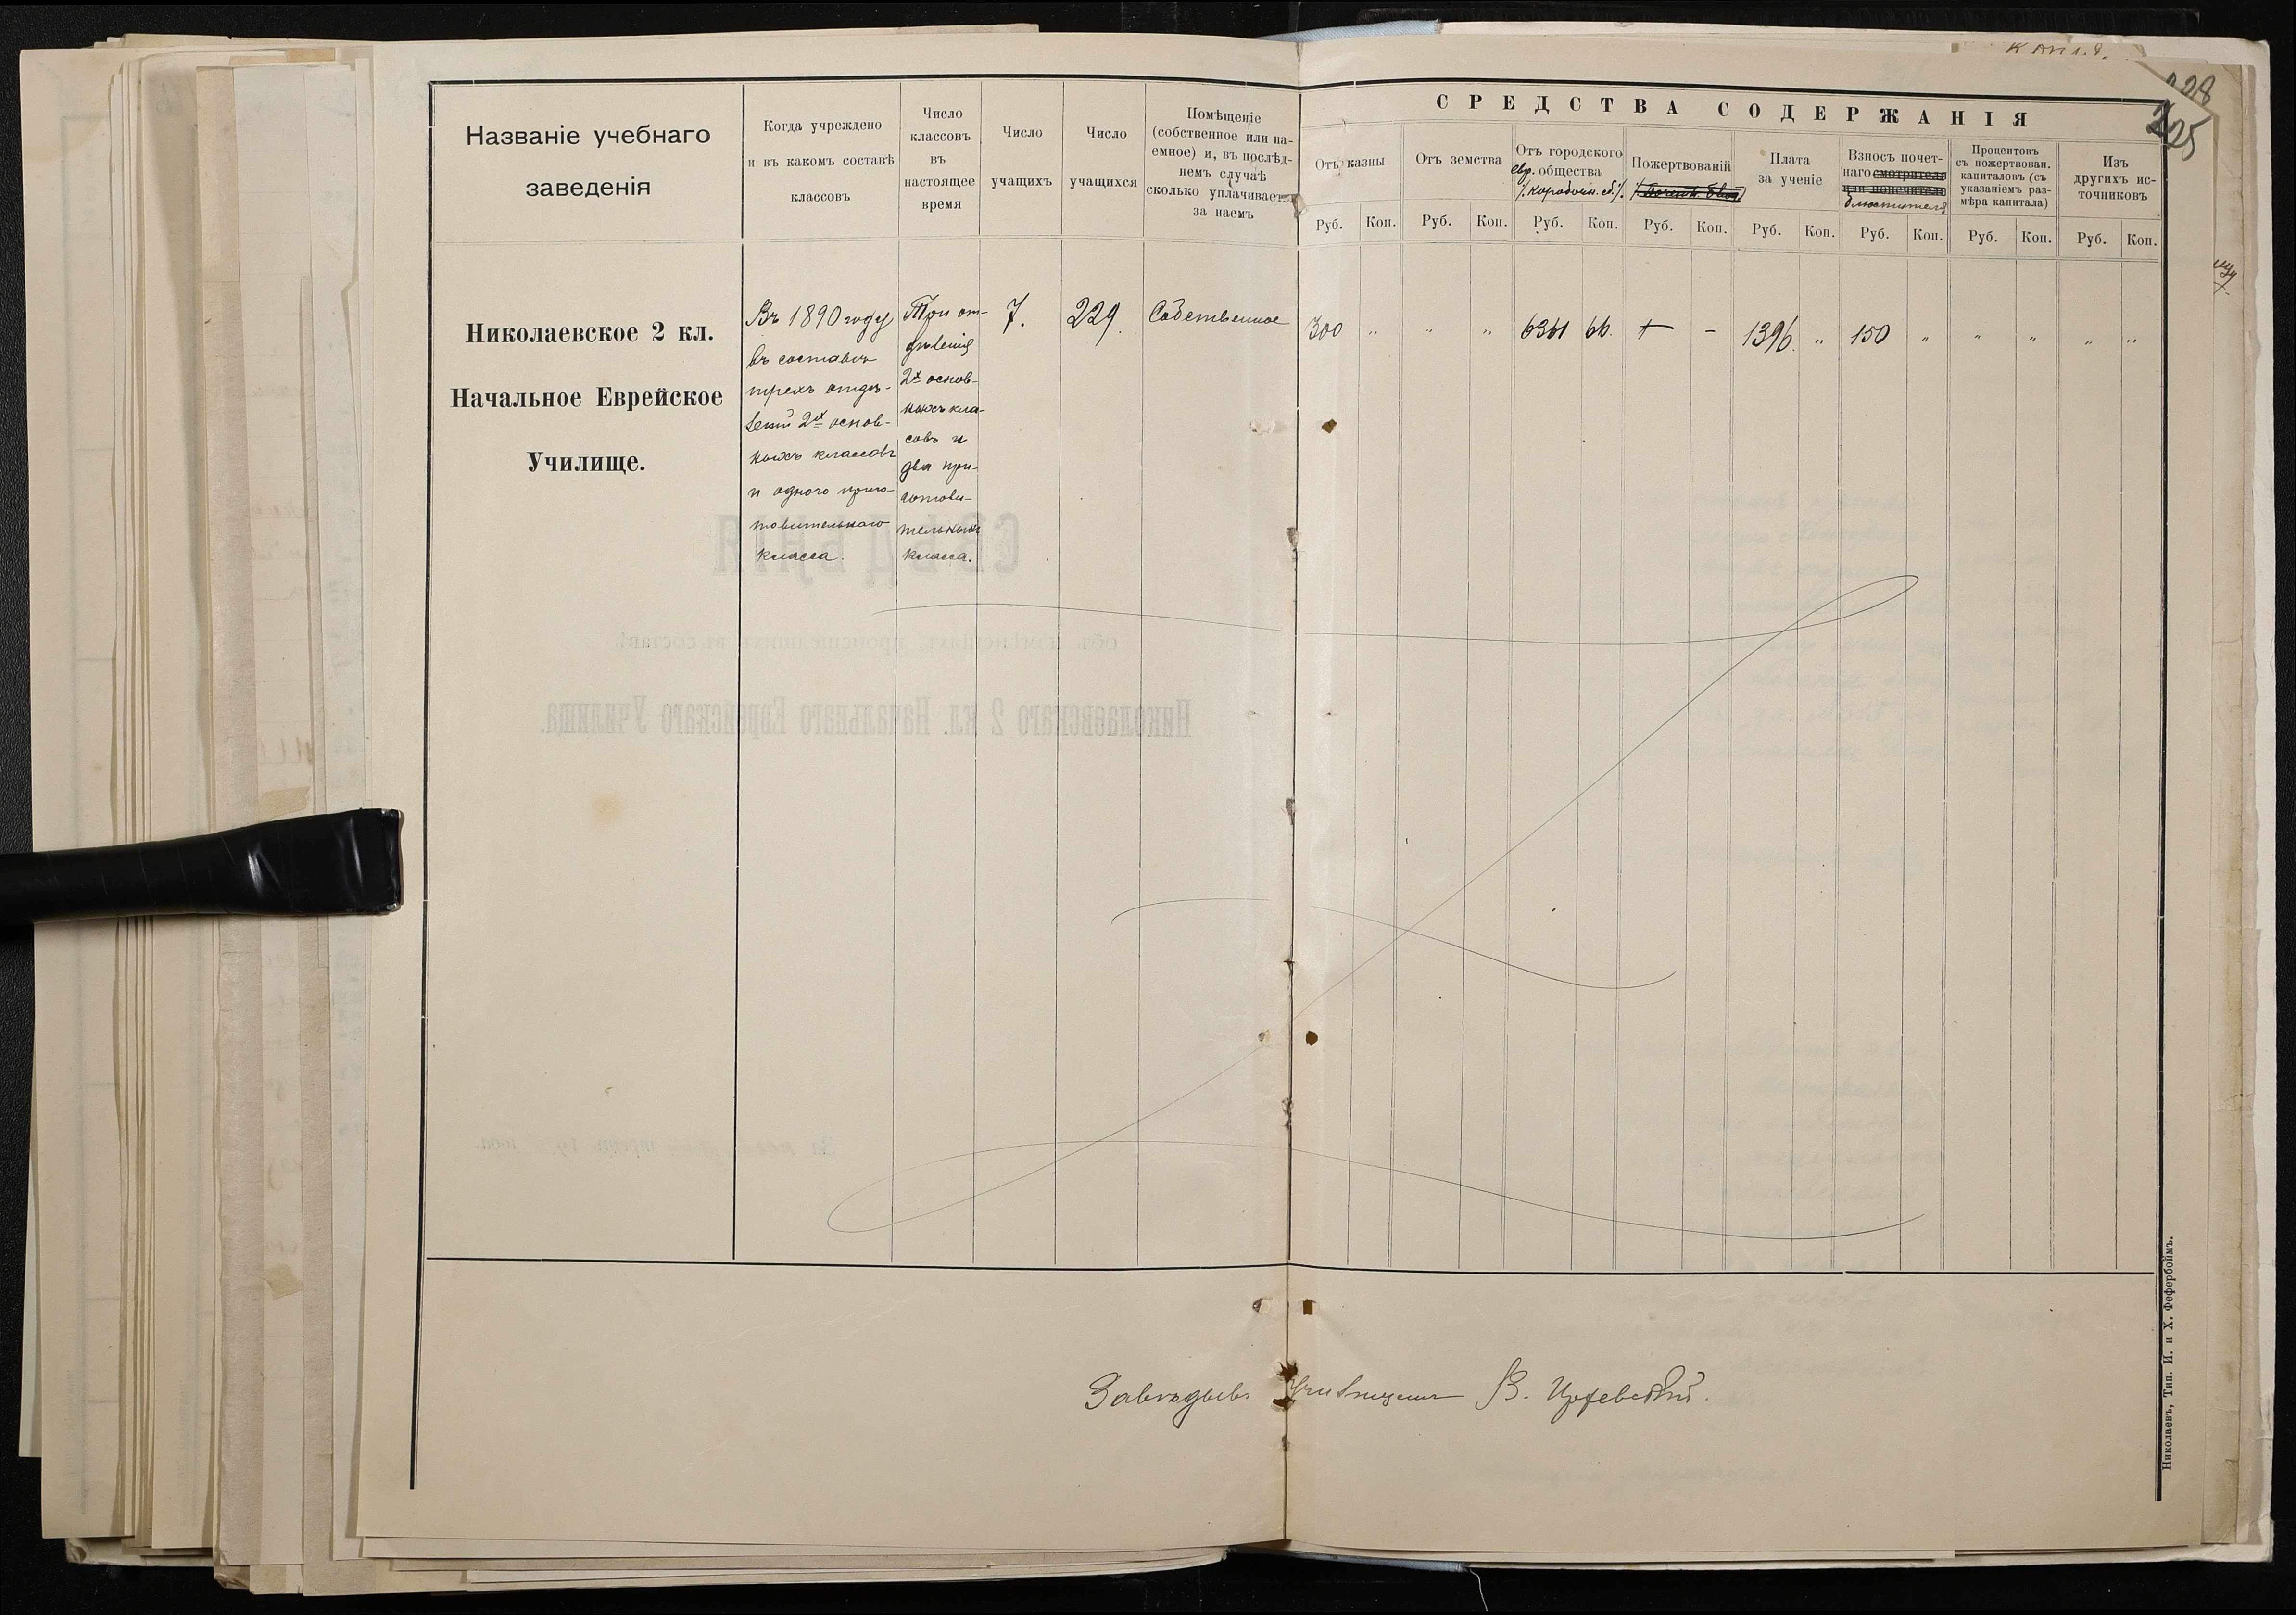 228
225
Названіе учебнаго
заведенія
Когда учреждено
и въ какомъ составѣ
классовъ
Число
классовъ
въ
настоящее
время
Число
учащихъ
Число
учащихся
Помѣщеніе
(собственное или на-
емное) и, въ послѣд-
немъ случаѣ
сколько уплачивается
за наемъ
СРЕДСТВА СОДЕРЖАНІЯ
Отъ казны
Отъ земства
Отъ городского
евр. общества
/. коробочн. сб./.
Пожертвованій
Плата
за ученіе
Взносъ почет-
наго смотрителя
или попечителя
блюстителя
Процентовъ
съ пожертвован.
капиталовъ (съ
указаніемъ раз-
мѣра капитала)
Изъ
другихъ ис-
точниковъ
Руб. Коп. Руб. Коп. Руб. Коп. Руб. Коп. Руб. Коп. Руб. Коп. Руб. Коп. Руб. Коп.
Николаевское 2 кл.
Начальное Еврейское
Училище.
Въ 1890 году
въ составѣ
трехъ отдѣ-
леній 2х основ-
ныхъ классовъ
и одного приго-
товительнаго
класса.
Три от-
дѣленія
2х основ-
ныхъ кла-
совъ и
два при-
готови-
тельныхъ
класса.
7.
229.
Собственное
300 " " " 6361 66. + - 1396. " 150 " " " " "
Завѣдыв. Училищемъ В.
Николаевъ, Тип. И. и Х. Фефербоймъ.